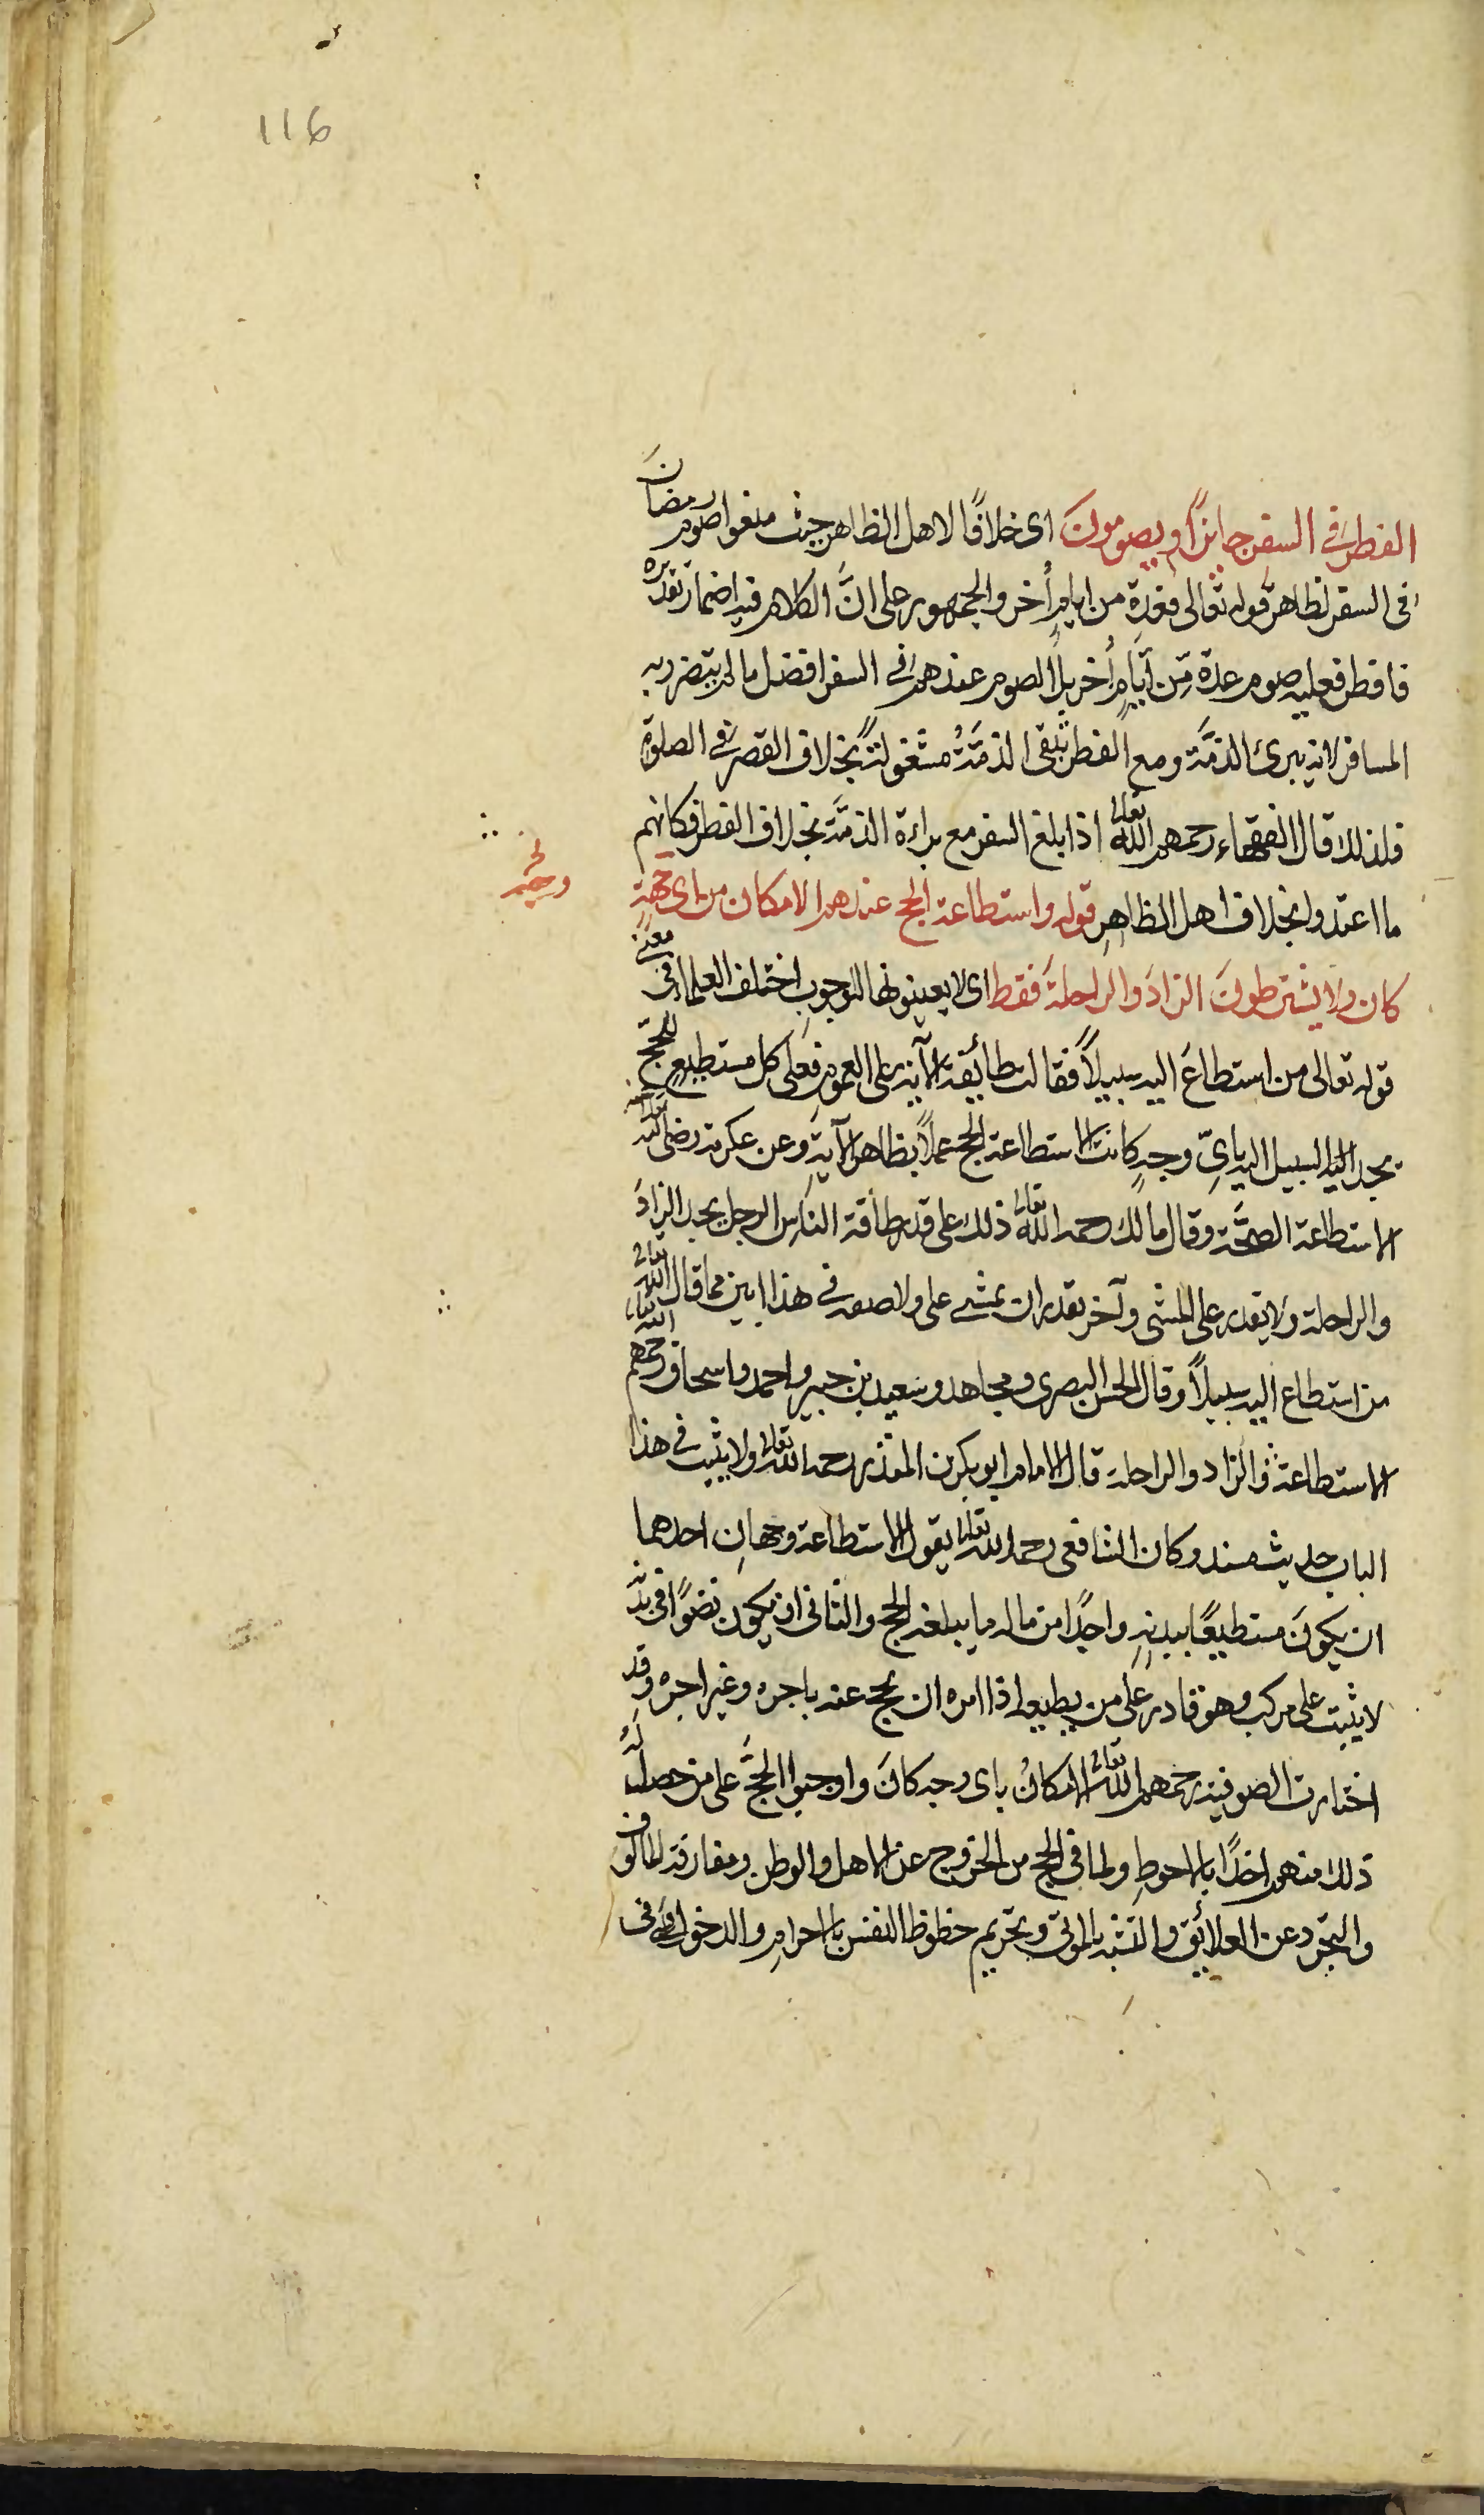 116
الفطر فى السفر جايزًا ويصومونَ اى خلافًا لاهل الظاهر حيث منعوا صوم رمضانَ
فى السفر لظاهر قوله تعالى فعدة من ايامٍ أُخر والجمهور على انَّ الكلام فيه اضمار تقديره
فافطر فعليه صوم عدة مّن أيّامٍ أُخر بل الصوم عندهم فى السفر افضل ما لم يتضرر به
المسافر لانه يبرئ الذمَّة ومع الفطر تبقى الذمَّةُ مشغولةً بخلاف القصر فى الصلوة
فلذلك قال الفقهاء رحمهم الله تعالى اذا بلغ السفر مع براءة الذمَّة بخلاف الفطر فكانهم
ما اعتدوا بخلاف اهل الظاهرِ قوله واستطاعة الحج عندهم الامكان من اى جهةٍ
وجه
كان ولا يشترطونَ الزادَ والراحلةَ فقط اى لا يعينونها للوجوبِ اختلف العلماء فى معنى
قوله تعالى من استطاعَ اليه سبيلاً فقالت طائفة الآية على العموم فعلى كل مستطيعٍ للحج
يجد اليه السبيل اليه باىِّ وجهٍ كانت الاستطاعة الحج عملاً بظاهر الآيةِ وعن عكرمة رضى الله عنه
الاستطاعة الصحَّة وقال مالك رحمه الله تعالى ذلك على قدر طاقة الناس الرجل يجد الزادَ
والراحلة ولا يقدر على المشى وآخر يقدر ان يمشى على ولا صفة فى هذا ابين مما قال الله تعالى
من استطاع اليه سبيلاً وقال الحسن البصرى ومجاهد وسعيد بن جبير واحمد واسحاق رحمهم الله تعالى
الاستطاعة الزاد والراحلة قال الامام ابو بكر بن المنذر رحمه الله تعالى ولا يثبت فى هذا
الباب حديث مسند وكان الشافعى رحمه الله تعالى يقول الاستطاعة وجهانِ احدهما
ان يكونَ مستطيعًا ببدنهِ واجدًا من ماله ما يبلغه الحج والثانى ان يكون نضوًا فى بدنه
لا يثبت على مركب وهو قادر على من يطيعه اذا امره ان يحج عنه باجره وغير اجره وقد
اختارت الصوفية رحمهم الله تعالى الامكانُ باى وجه كانَ واوجبوا الحجَّ على من حصل لَهُ
ذلك منهم اخذًا بالاحوطِ ولما فى الحج من الخروج عن الاهل والوطن ومفارقة المالوف
والتجرد عن العلائق والتشبه بالموتى وتحريم حظوظ النفس بالاحرامِ والدخول فى